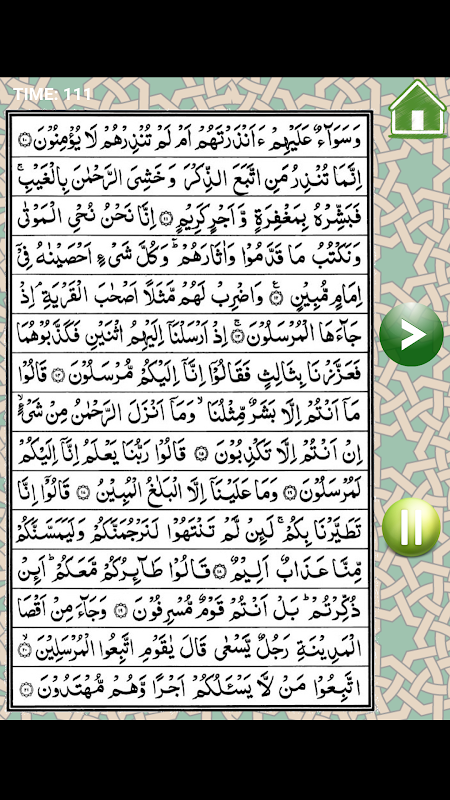 TIME: 111
وَسَوَآءٌ عَلَيْهِمْ ءَاَنْذَرْتَهُمْ اَمْ لَمْ تُنْذِرْهُمْ لَا يُؤْمِنُوْنَ ۝١٠
اِنَّمَا تُنْذِرُ مَنِ اتَّبَعَ الذِّكْرَ وَ خَشِىَ الرَّحْمٰنَ بِالْغَيْبِۚ
فَبَشِّرْهُ بِمَغْفِرَةٍ وَّ اَجْرٍ كَرِيْمٍ ۝١١ اِنَّا نَحْنُ نُحْىِ الْمَوْتٰى
وَنَكْتُبُ مَا قَدَّمُوْا وَاٰثَارَهُمْؕ وَكُلَّ شَىْءٍ اَحْصَيْنٰهُ فِىْۤ
اِمَامٍ مُّبِيْنٍ ۝١٢ وَاضْرِبْ لَهُمْ مَّثَلًا اَصْحٰبَ الْقَرْيَةِۘ اِذْ
جَآءَهَا الْمُرْسَلُوْنَ ۝١٣ اِذْ اَرْسَلْنَاۤ اِلَيْهِمُ اثْنَيْنِ فَكَذَّبُوْهُمَا
فَعَزَّزْنَا بِثَالِثٍ فَقَالُوْۤا اِنَّاۤ اِلَيْكُمْ مُّرْسَلُوْنَ ۝١٤ قَالُوْا
مَاۤ اَنْتُمْ اِلَّا بَشَرٌ مِّثْلُنَاۙ وَمَاۤ اَنْزَلَ الرَّحْمٰنُ مِنْ شَىْءٍۙ
اِنْ اَنْتُمْ اِلَّا تَكْذِبُوْنَ ۝١٥ قَالُوْا رَبُّنَا يَعْلَمُ اِنَّاۤ اِلَيْكُمْ
لَمُرْسَلُوْنَ ۝١٦ وَمَا عَلَيْنَاۤ اِلَّا الْبَلٰغُ الْمُبِيْنُ ۝١٧ قَالُوْۤا اِنَّا
تَطَيَّرْنَا بِكُمْۚ لَئِنْ لَّمْ تَنْتَهُوْا لَنَرْجُمَنَّكُمْ وَلَيَمَسَّنَّكُمْ
مِّنَّا عَذَابٌ اَلِيْمٌ ۝١٨ قَالُوْا طَآئِرُكُمْ مَّعَكُمْؕ اَئِنْ
ذُكِّرْتُمْؕ بَلْ اَنْتُمْ قَوْمٌ مُّسْرِفُوْنَ ۝١٩ وَجَآءَ مِنْ اَقْصَا
الْمَدِيْنَةِ رَجُلٌ يَّسْعٰى قَالَ يٰقَوْمِ اتَّبِعُوا الْمُرْسَلِيْنَۙ ۝٢٠
اتَّبِعُوْا مَنْ لَّا يَسْئَلُكُمْ اَجْرًا وَّهُمْ مُّهْتَدُوْنَ ۝٢١